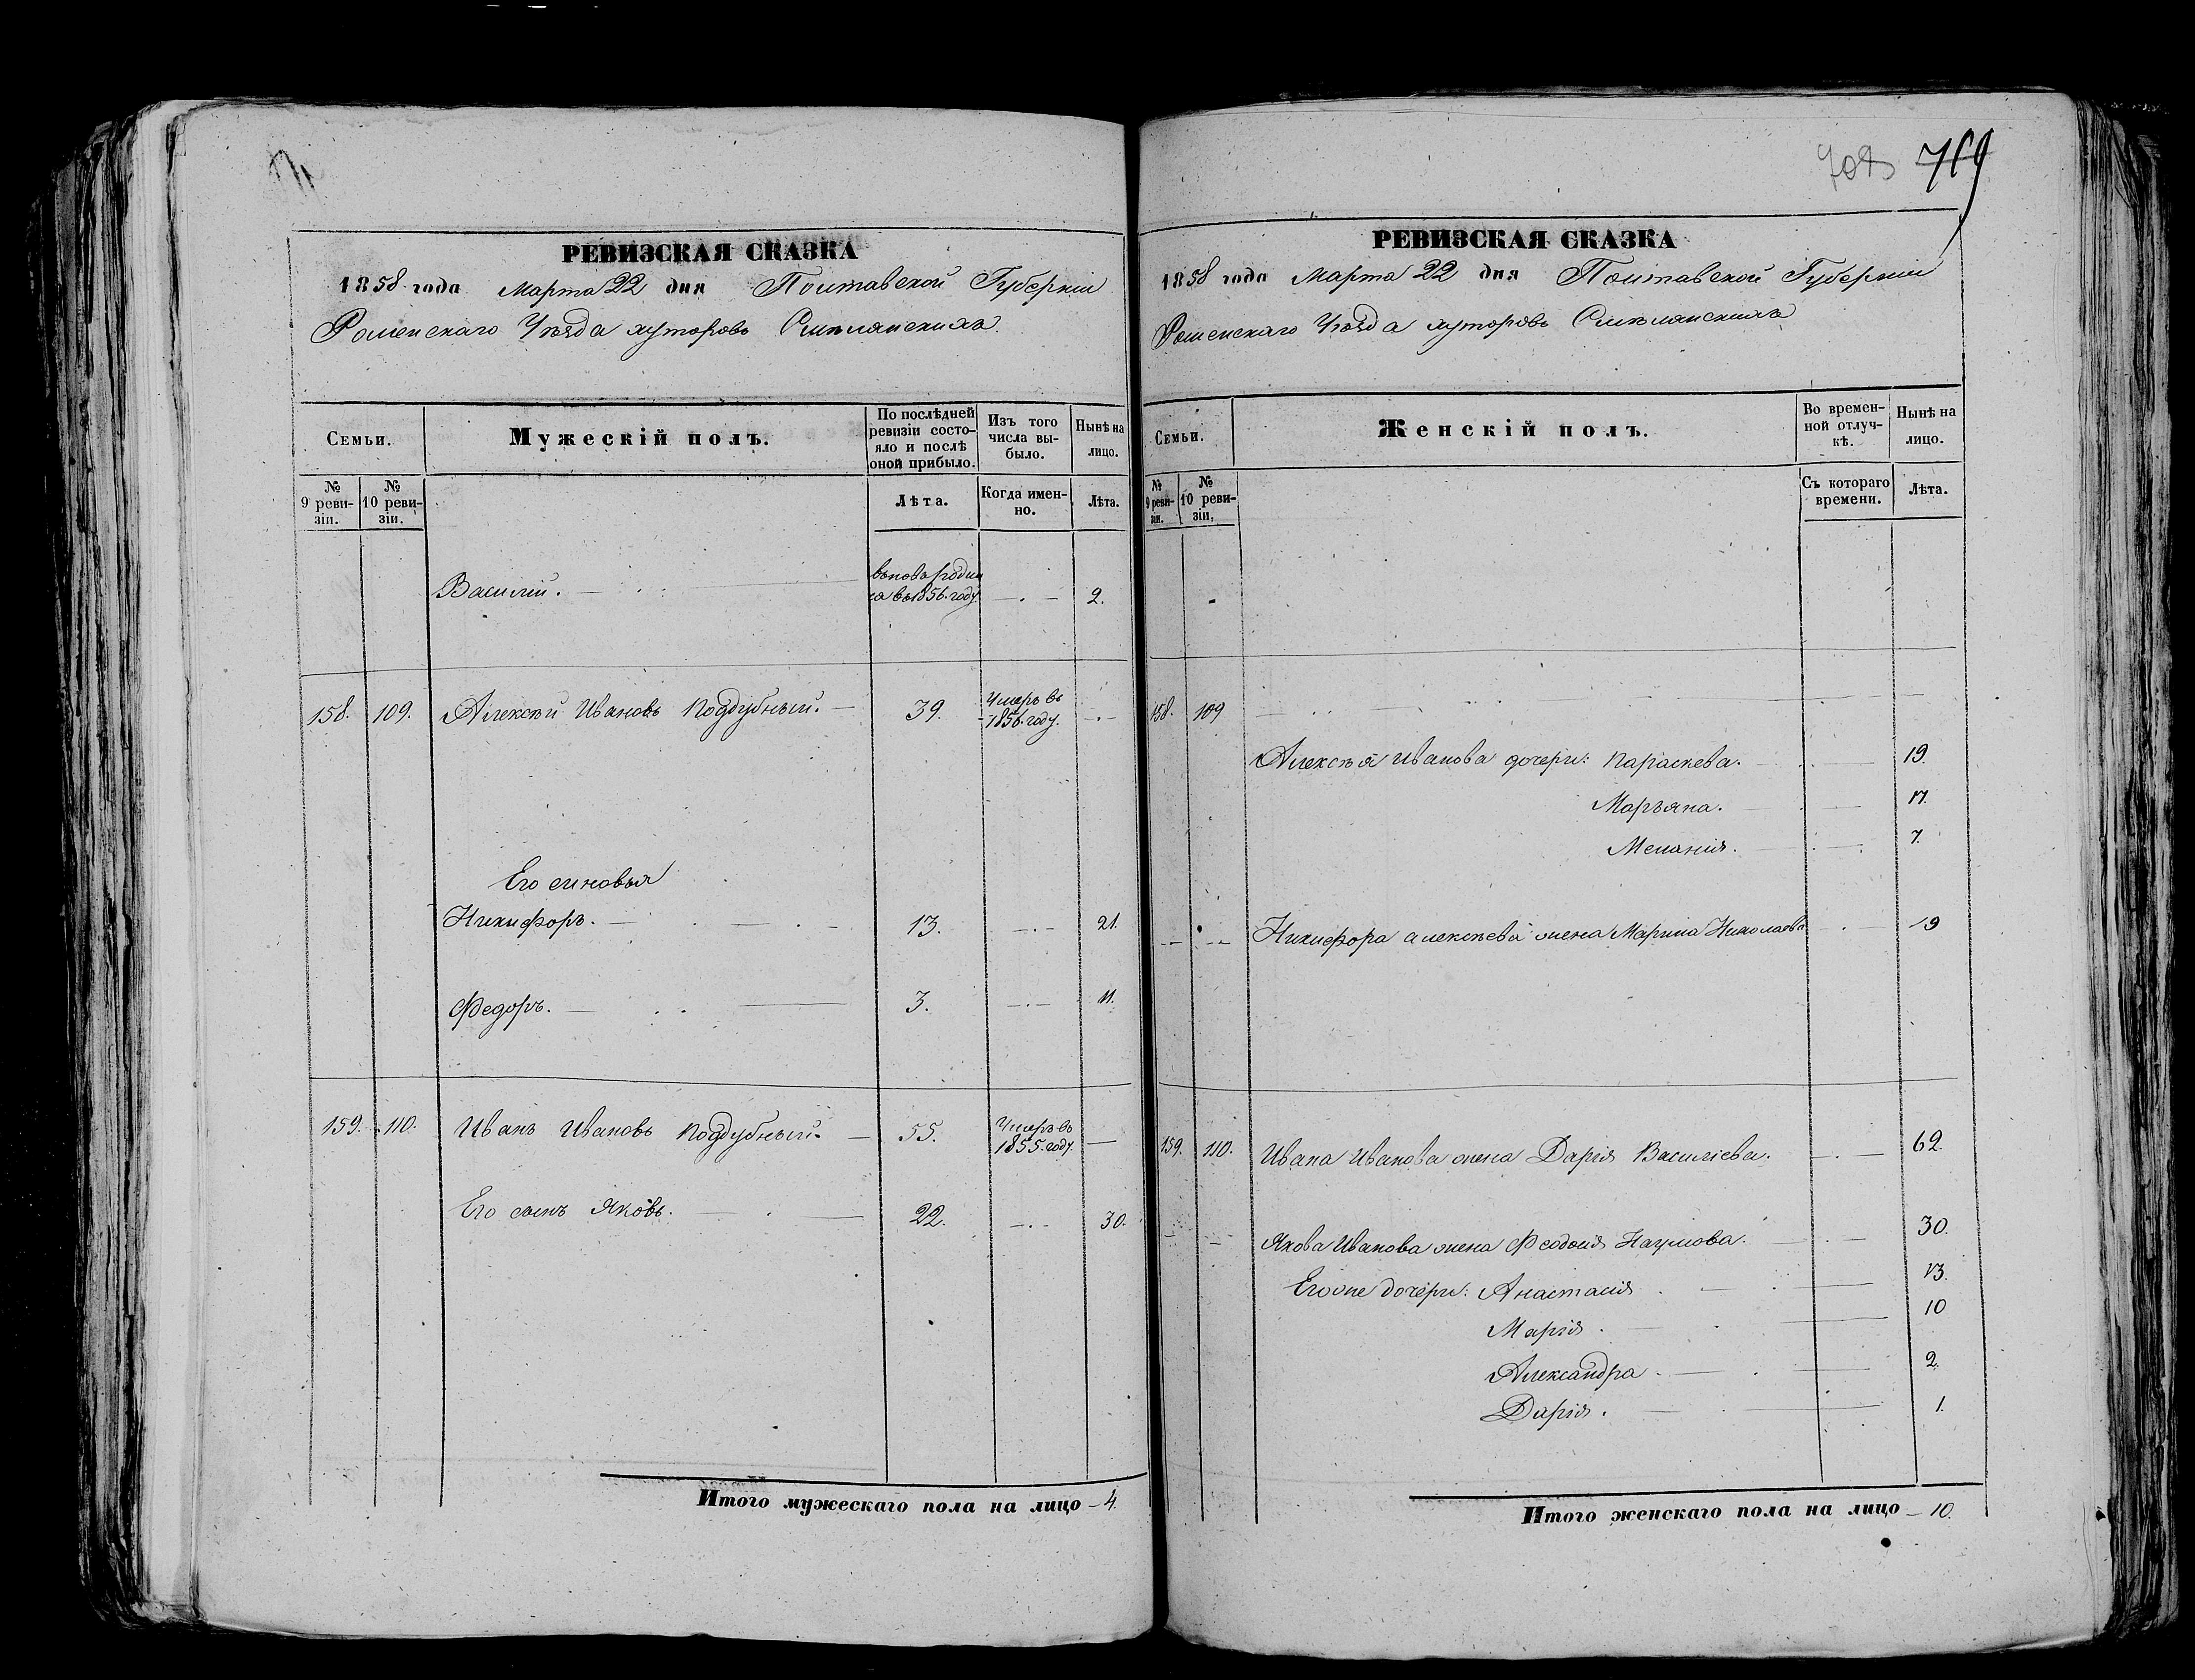 РЕВИЗСКАЯ СКАЗКА
1858 года Марта 22 дня Полтавской Губерніи
Роменскаго Уѣзда хуторовъ Смѣлянскихъ.
Семьи.
Мужескій полъ.
По послѣдней ревизіи состояло и послѣ оной прибыло.
Изъ того числа выбыло.
Нынѣ на лицо.
№ 9 ревизіи.
№ 10 ревизіи.
Лѣта.
Когда именно.
Лѣта.
Василій. вновь родил
ся въ 1856. году. 2.
158. 109. Алексѣй Ивановъ Поддубный. 39. Умеръ въ
1856. году.
Его синовья
Никифоръ. 13. 21.
Федоръ. 3. 11.
159. 110. Иванъ Ивановъ Поддубный. 55. Умеръ въ
1855. году.
Его сынъ Яковъ. 22. 30.
Итого мужескаго пола на лицо 4.
769
РЕВИЗСКАЯ СКАЗКА
1858 года Марта 22 дня Полтавской Губерніи
Роменскаго Уѣзда хуторовъ Смѣлянскихъ
Семьи.
Женскій полъ.
Во временной отлучкѣ.
Нынѣ на лицо.
№ 9 ревизіи.
№ 10 ревизіи.
Съ котораго времени.
Лѣта.
158. 109
Алексѣя Иванова дочери: Параскева. 19.
Марьяна. 17.
Меланія. 7.
Никифора Алексѣева жена Марина Николаева 19
159. 110. Ивана Иванова жена Дарія Василіева. 62.
Якова Иванова жена Феодосія Наумова. 30.
Егоже дочери: Анастасія 13.
Марія. 10
Александра. 2.
Дарія. 1.
Итого женскаго пола на лицо 10.